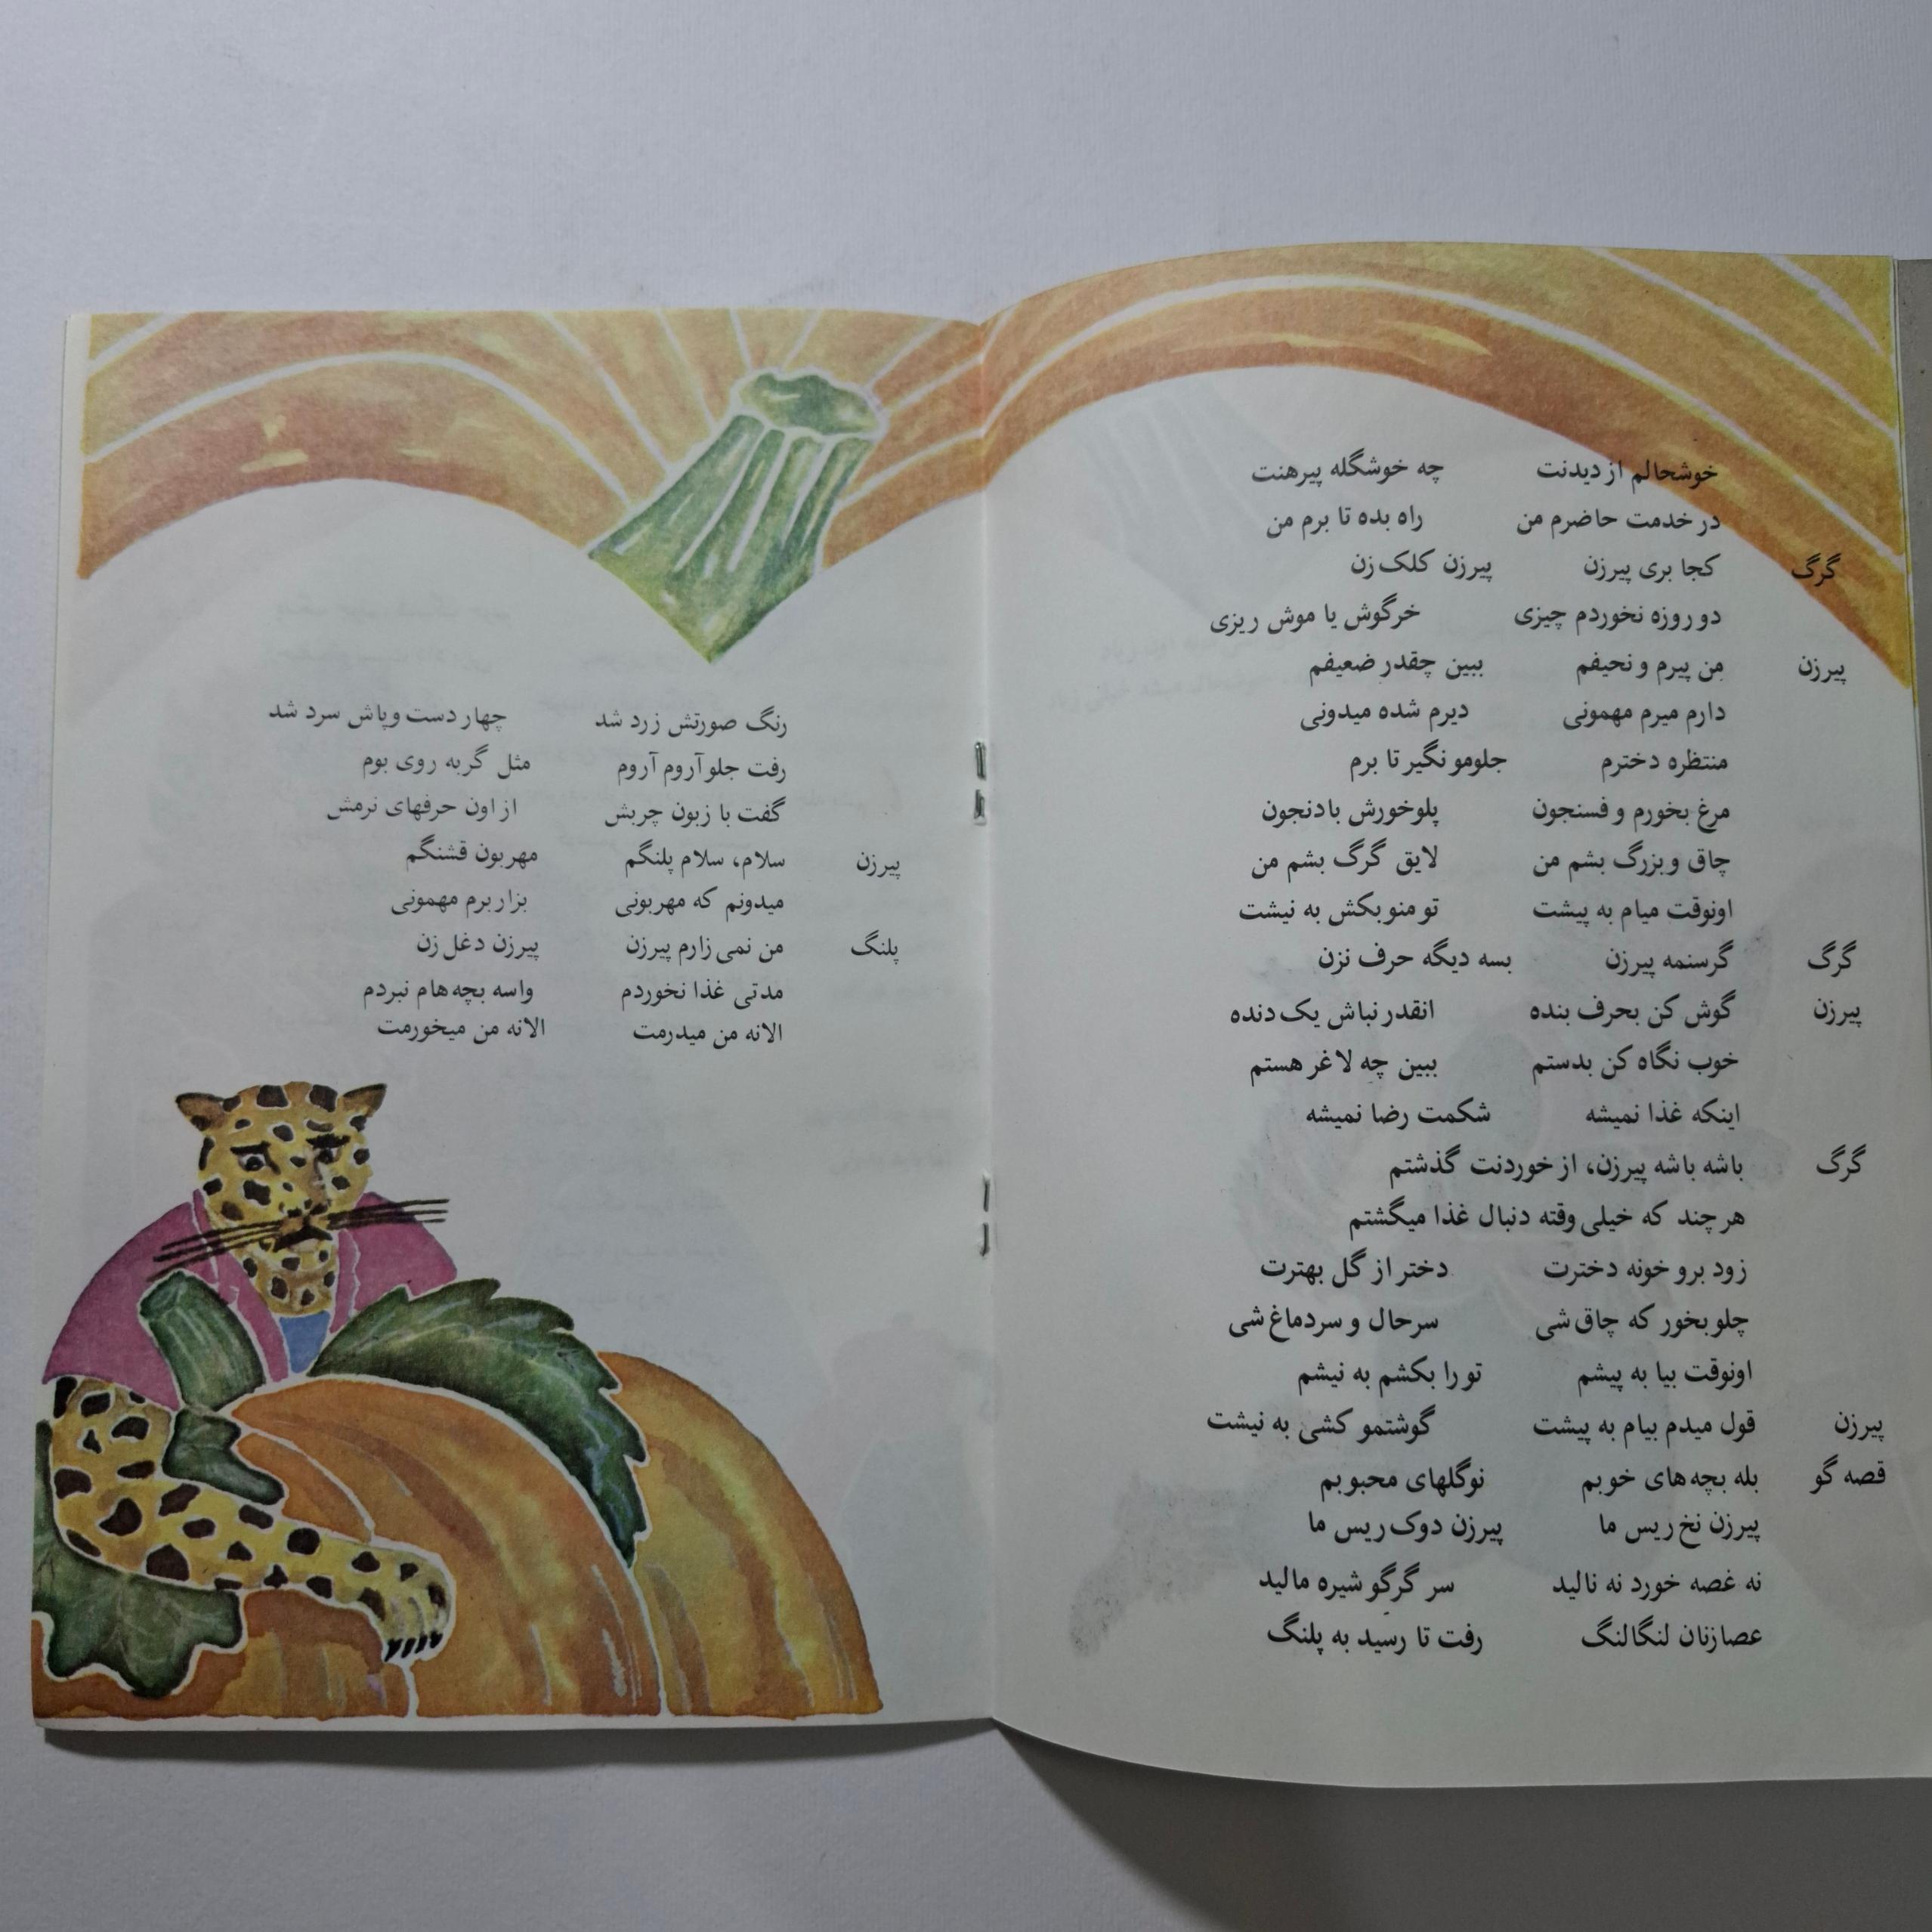 خوشحالم از دیدنت چه خوشگله پیرهنت
در خدمت حاضرم من راه بده تا برم من
گرگ کجا بری پیرزن پیرزن کلک زن
دو روزه نخوردم چیزی خرگوش یا موش ریزی
پیرزن من پیرم و نحیفم ببین چقدر ضعیفم
دارم میرم مهمونی دیرم شده میدونی
منتظره دخترم جلومو نگیر تا برم
مرغ بخورم و فسنجون پلوخورش بادنجون
چاق و بزرگ بشم من لایق گرگ بشم من
اونوقت میام به پیشت تو منو بکش به نیشت
گرگ گرسنمه پیرزن بسه دیگه حرف نزن
پیرزن گوش کن بحرف بنده انقدر نباش یک دنده
خوب نگاه کن بدستم ببین چه لاغر هستم
اینکه غذا نمیشه شکمت رضا نمیشه
گرگ باشه باشه پیرزن، از خوردنت گذشتم
هر چند که خیلی وقته دنبال غذا میگشتم
زود برو خونه دخترت دختر از گل بهترت
چلو بخور که چاق شی سرحال و سردماغ شی
اونوقت بیا به پیشم تو را بکشم به نیشم
پیرزن قول میدم بیام به پیشت گوشتمو کشی به نیشت
قصه گو بله بچه های خوبم نوگلهای محبوبم
پیرزن نخ ریس ما پیرزن دوک ریس ما
نه غصه خورد نه نالید سر گرگو شیره مالید
عصازنان لنگالنگ رفت تا رسید به پلنگ
رنگ صورتش زرد شد چهار دست وپاش سرد شد
رفت جلو آروم آروم مثل گربه روی بوم
گفت با زبون چربش از اون حرفهای نرمش
پیرزن سلام، سلام پلنگم مهربون قشنگم
میدونم که مهربونی بزار برم مهمونی
پلنگ من نمی زارم پیرزن پیرزن دغل زن
مدتی غذا نخوردم واسه بچه هام نبردم
الانه من میدرمت الانه من میخورمت